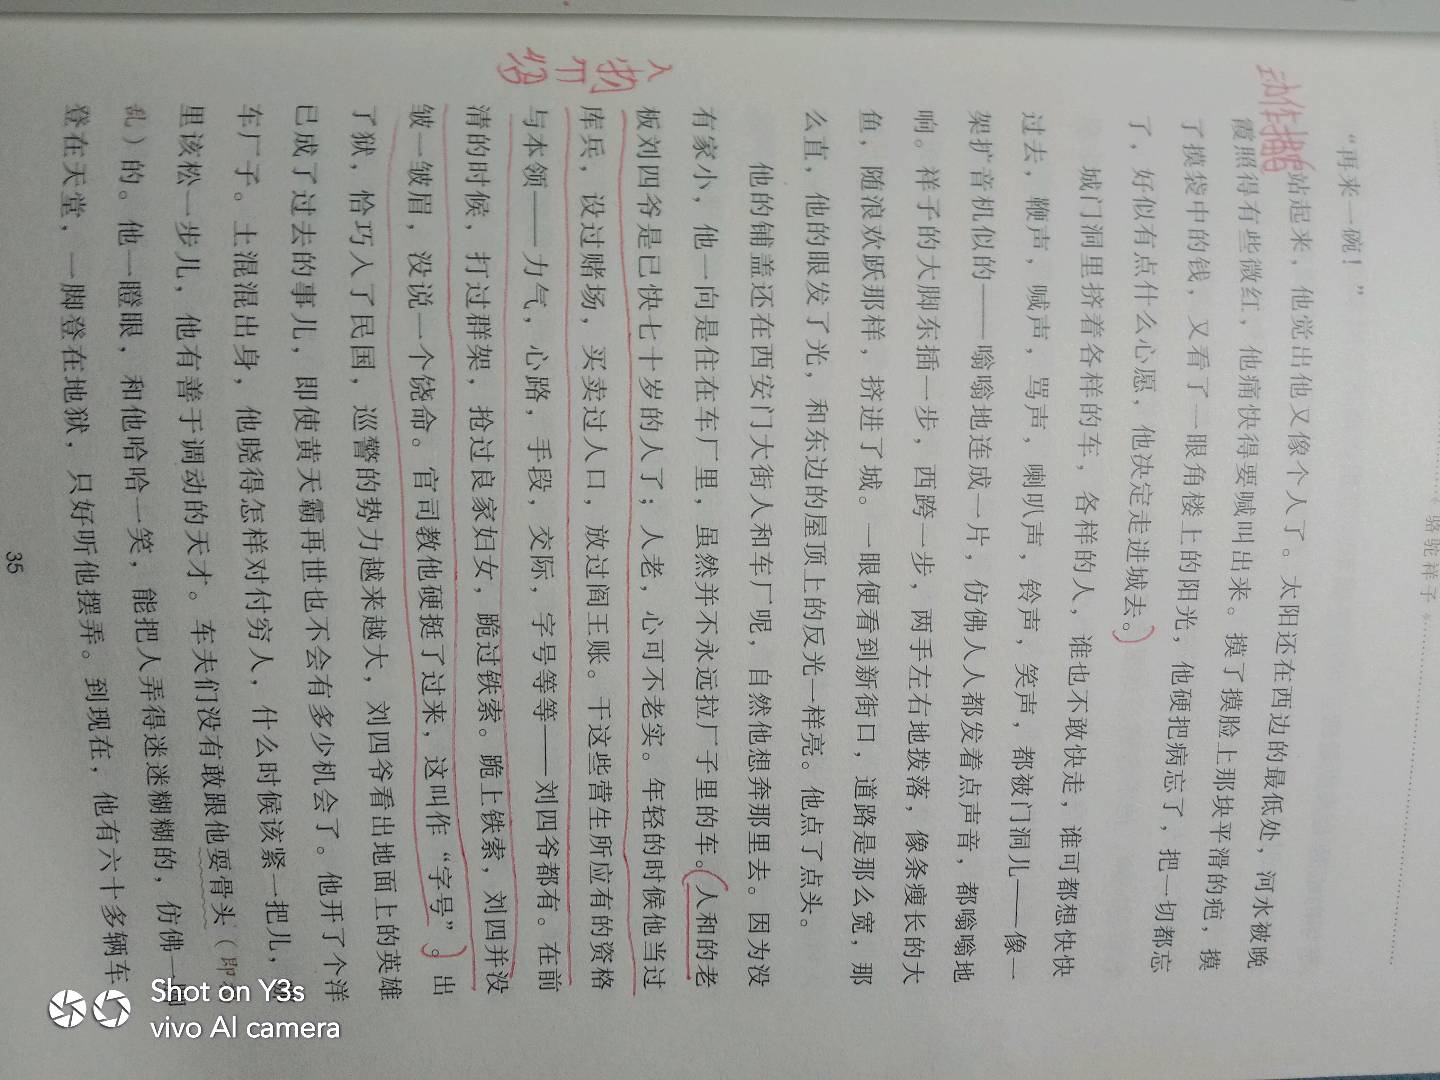 骆驼祥子
“再来一碗！”
动作描
站起来，他觉出他又像个人了。太阳还在西边的最低处，河水被晚
霞照得有些微红，他痛快得要喊叫出来。摸了摸脸上那块平滑的疤，摸
了摸袋中的钱，又看了一眼角楼上的阳光，他硬把病忘了，把一切都忘
了，好似有点什么心愿，他决定走进城去。
城门洞里挤着各样的车，各样的人，谁也不敢快走，谁可都想快快
过去，鞭声，喊声，骂声，喇叭声，铃声，笑声，都被门洞儿——像一
架扩音机似的——嗡嗡地连成一片，仿佛人人都发着点声音，都嗡嗡地
响。祥子的大脚东插一步，西跨一步，两手左右地拨落，像条瘦长的大
鱼，随浪欢跃那样，挤进了城。一眼便看到新街口，道路是那么宽，那
么直，他的眼发了光，和东边的屋顶上的反光一样亮。他点了点头。
他的铺盖还在西安门大街人和车厂呢，自然他想奔那里去。因为没
有家小，他一向是住在车厂里，虽然并不永远拉厂子里的车。人和的老
人物介绍
板刘四爷是已快七十岁的人了；人老，心可不老实。年轻的时候他当过
库兵，设过赌场，买卖过人口，放过阎王账。干这些营生所应有的资格
与本领——力气，心路，手段，交际，字号等等——刘四爷都有。在前
清的时候，打过群架，抢过良家妇女，跪过铁索。跪上铁索，刘四并没
皱一皱眉，没说一个饶命。官司教他硬挺了过来，这叫作“字号”。出
了狱，恰巧入了民国，巡警的势力越来越大，刘四爷看出地面上的英雄
已成了过去的事儿，即使黄天霸再世也不会有多少机会了。他开了个洋
车厂子。土混混出身，他晓得怎样对付穷人，什么时候该紧一把儿，
里该松一步儿，他有善于调动的天才。车夫们没有敢跟他耍骨头（即
乱）的。他一瞪眼，和他哈哈一笑，能把人弄得迷迷糊糊的，仿佛一
登在天堂，一脚登在地狱，只好听他摆弄。到现在，他有六十多辆车
35
Shot on Y3s
vivo AI camera